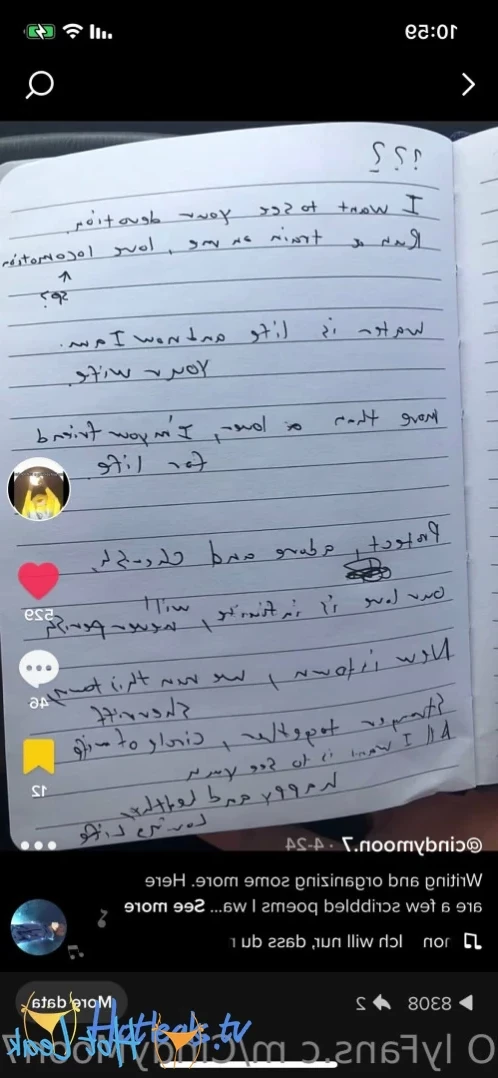 10:59
???
I want to see your devotion.
Run a train on me, love locomotion
↑
sp?
water is life and now I am.
Your wife.
More than a lover, I'm your friend
for life.
Protect, adore and cherish.
will
Our love is infinite, never perish
New is town, we run this town,
Sherriff
Stronger together, circle of
All I want is to see you
happy and healthy
Loving Life
529
46
12
@cindymoon.7 · 4-24
Writing and organizing some more. Here
are a few scribbled poems I wa... See more
Ich will nur, dass du
8308
2
More data
Hotleak.tv
Hot Leak